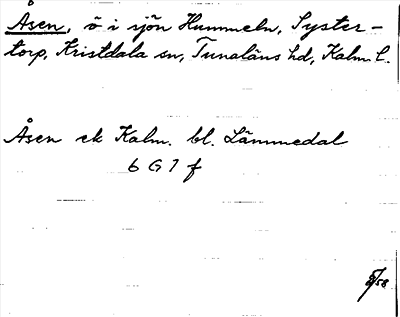 Åsen, ö i sjön Hummeln, Syster-
torp, Kristdala sn, Tunaläns hd, Kalm. l.
Åsen ek Kalm. bl. Lämmedal
6 G 7 f
/58